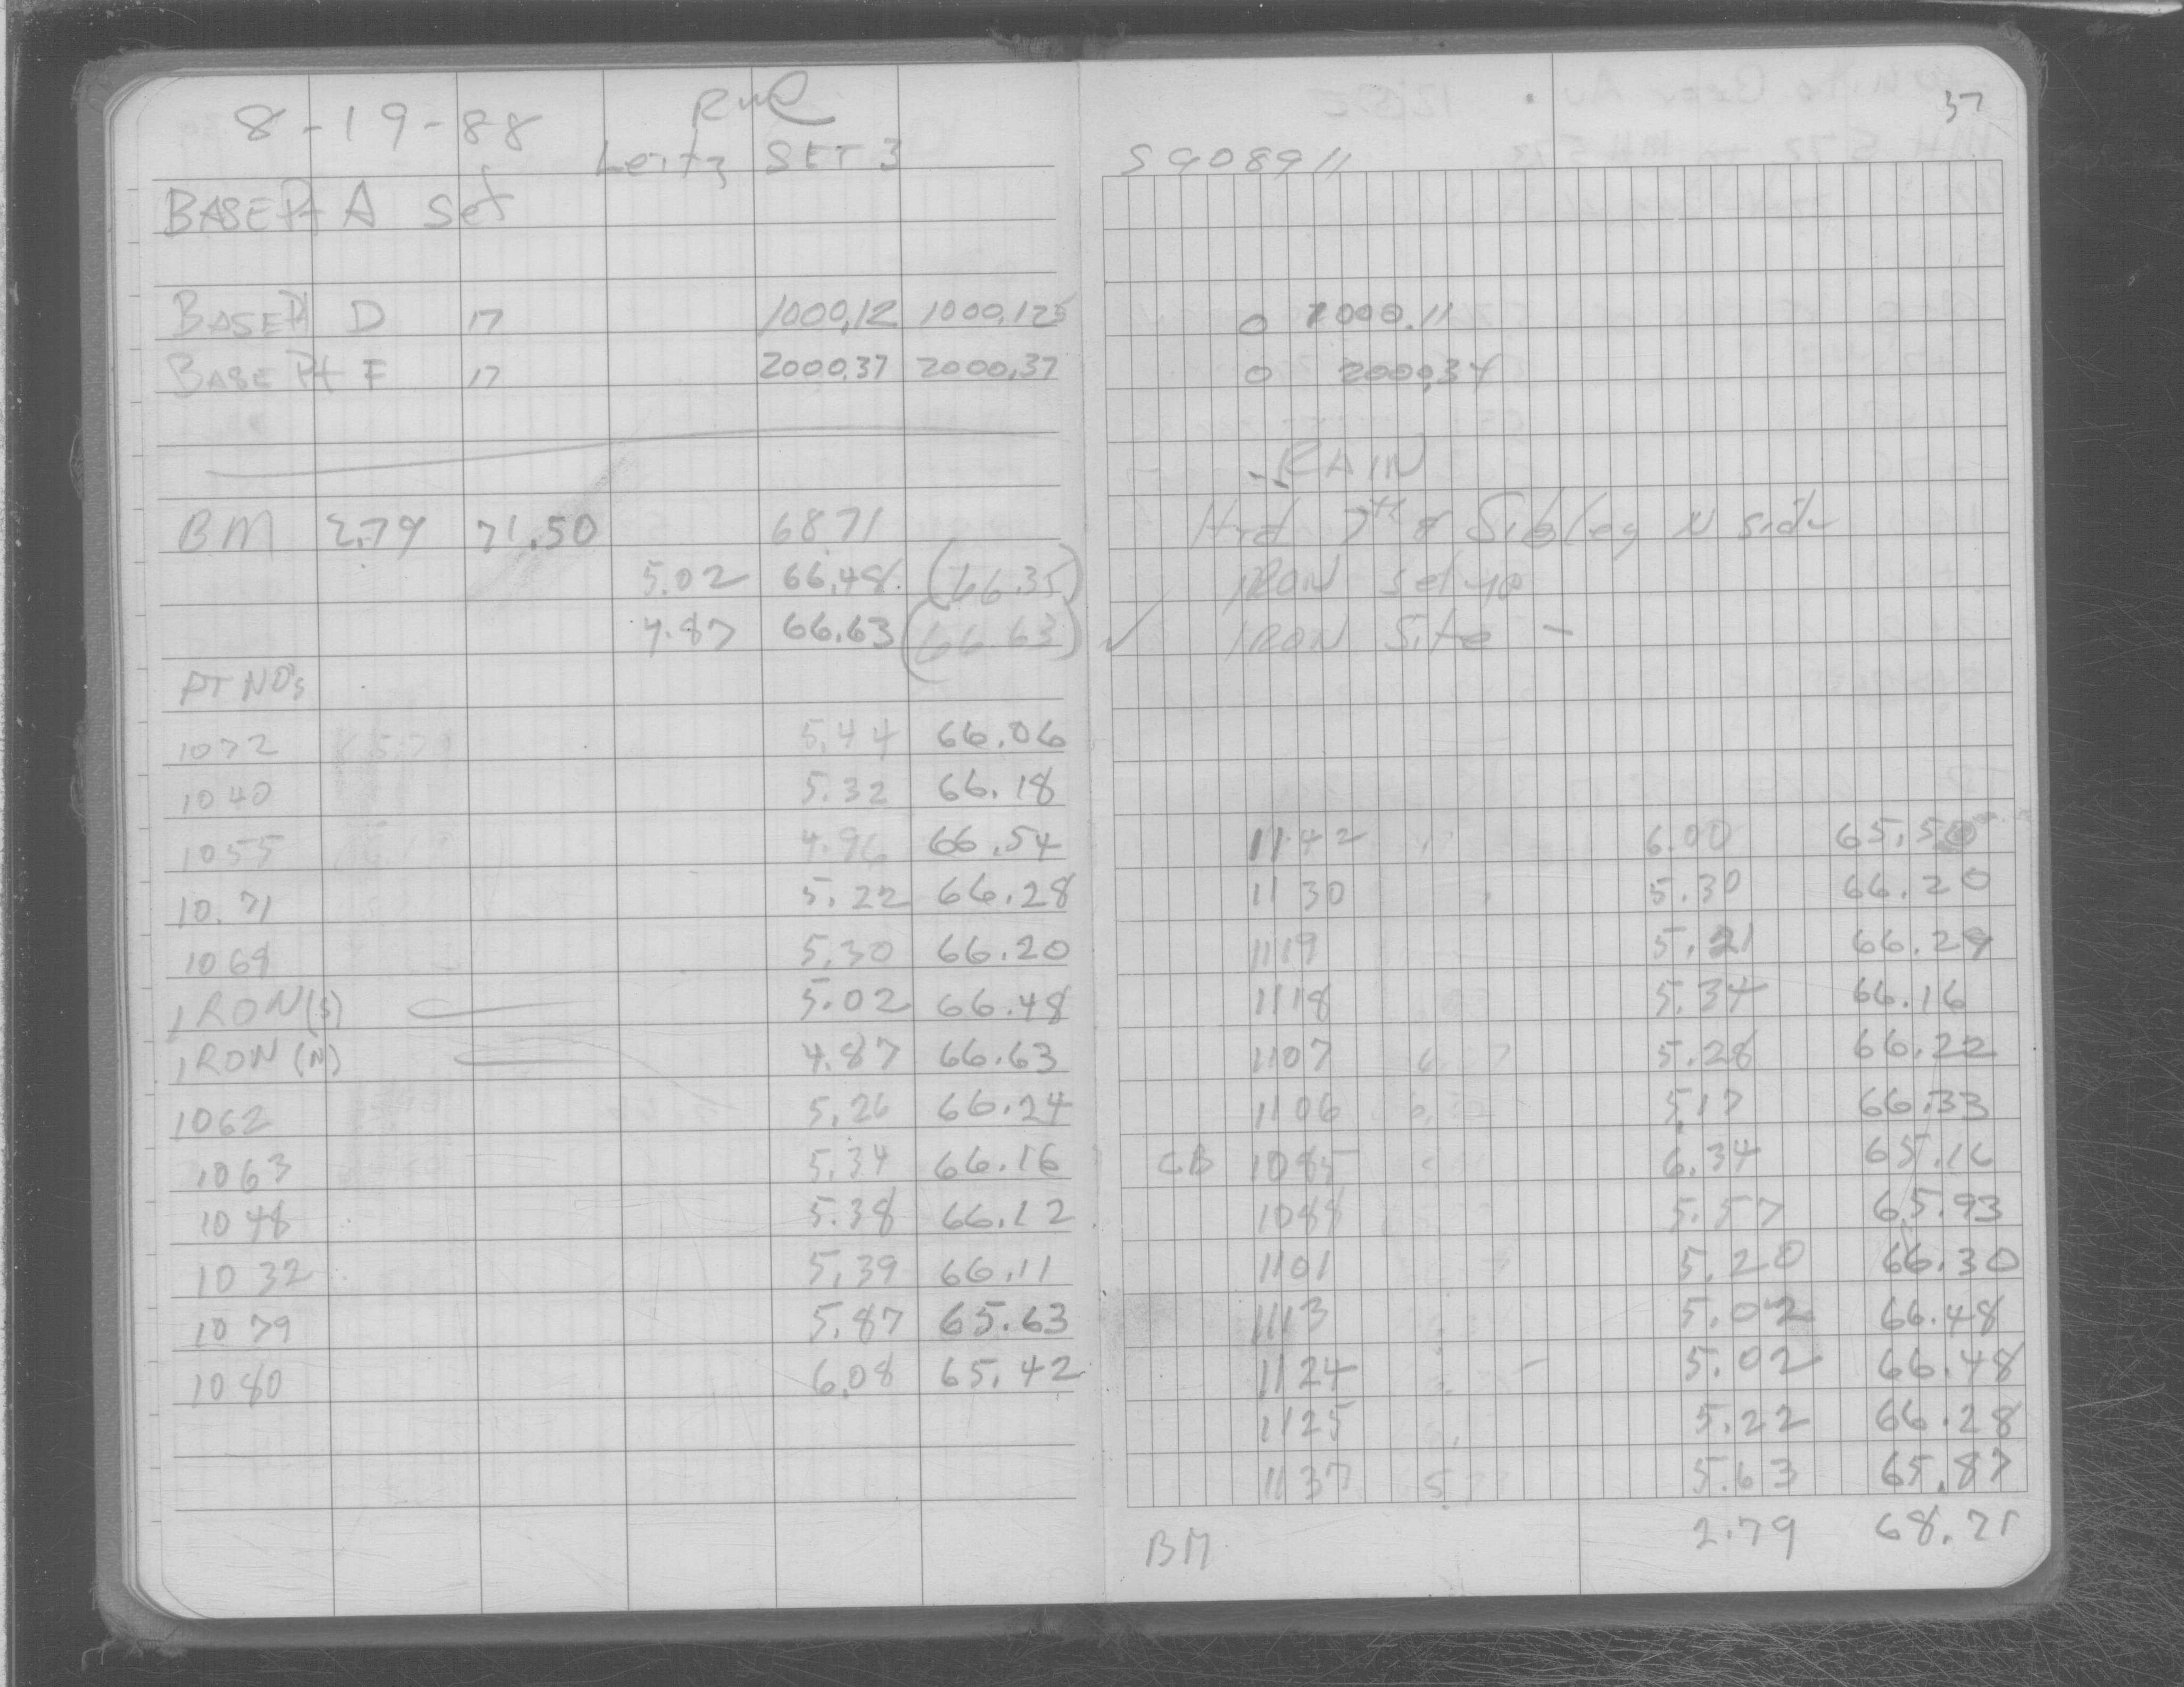 8-19-88 RWR
Leitz SET 3
BASE Pt A Set
BASE Pt D " 1000.12 1000.125
BASE Pt F " 2000.37 2000.37
BM 2.79 71.50 6871
5.02 66.48 (66.35)
4.87 66.63 (66.63)
PT NO's
1072 5.44 66.06
1040 5.32 66.18
1055 4.96 66.54
10.71 5.22 66.28
1069 5.30 66.20
IRON (S) 5.02 66.48
IRON (N) 4.87 66.63
1062 5.26 66.24
1063 5.34 66.16
1048 5.38 66.12
1032 5.39 66.11
1079 5.87 65.63
1080 6.08 65.42
37
S908911
0 1000.11
0 2000.34
RAIN
Hyd 7th & Sibley N side
IRON set up
✓ IRON Site -
1142 6.00 65.50
1130 5.30 66.20
1119 5.21 66.29
1118 5.34 66.16
1107 5.28 66.22
1106 5.17 66.33
CB 1085 6.34 65.16
1088 5.57 65.93
1101 5.20 66.30
1113 5.02 66.48
1124 5.02 66.48
1125 5.22 66.28
1137 5.63 65.87
BM 2.79 68.71